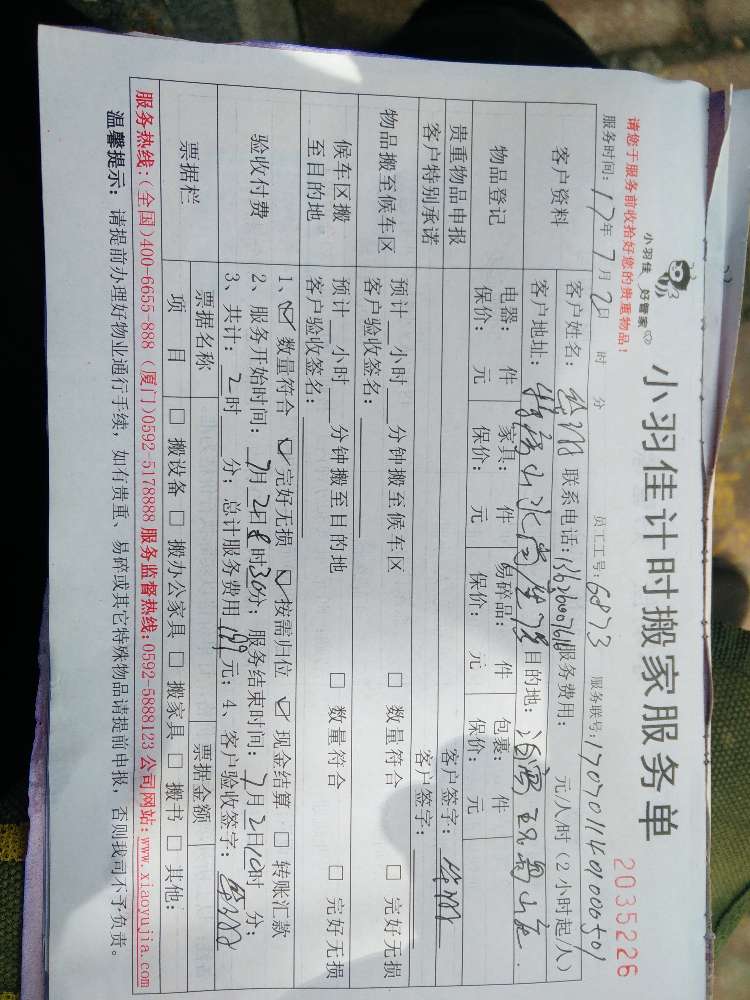 小羽佳 好管家
小羽佳计时搬家服务单
2035226
请您于服务前收拾好您的贵重物品！
服务时间：17年7月2日 时 分 员工工号：6873 服务联号：
客户资料
客户姓名： 联系电话： 服务费用： 元/人/时（2小时起/人）
客户地址： 目的地：
物品登记
电器： 件 家具： 件 易碎品： 件 包裹： 件
保价： 元 保价： 元 保价： 元 保价： 元
贵重物品申报 客户签字：
客户特别承诺 客户签字：
物品搬至候车区
预计__小时__分钟搬至候车区 □ 数量符合 □ 完好无损
客户验收签名：
候车区搬至目的地
预计__小时__分钟搬至目的地 □ 数量符合 □ 完好无损
客户验收签名：
验收付费
1、☑ 数量符合 ☑ 完好无损 ☑ 按需归位 ☑ 现金结算 □ 转账汇款
2、服务开始时间：7月2日8时30分；服务结束时间：7月2日10时 分；
3、共计：2时 分；总计服务费用 元；4、客户验收签字：
票据栏
票据名称 票据金额
项 目 □ 搬设备 □ 搬办公家具 □ 搬家具 □ 搬书 □ 其他：
服务热线：(全国)400-6655-888 (厦门)0592-5178888 服务监督热线：0592-5888123 公司网站：www.xiaoyujia.com
温馨提示：请提前办理好物业通行手续，如有贵重、易碎或其它特殊物品请提前申报，否则我司不予负责。